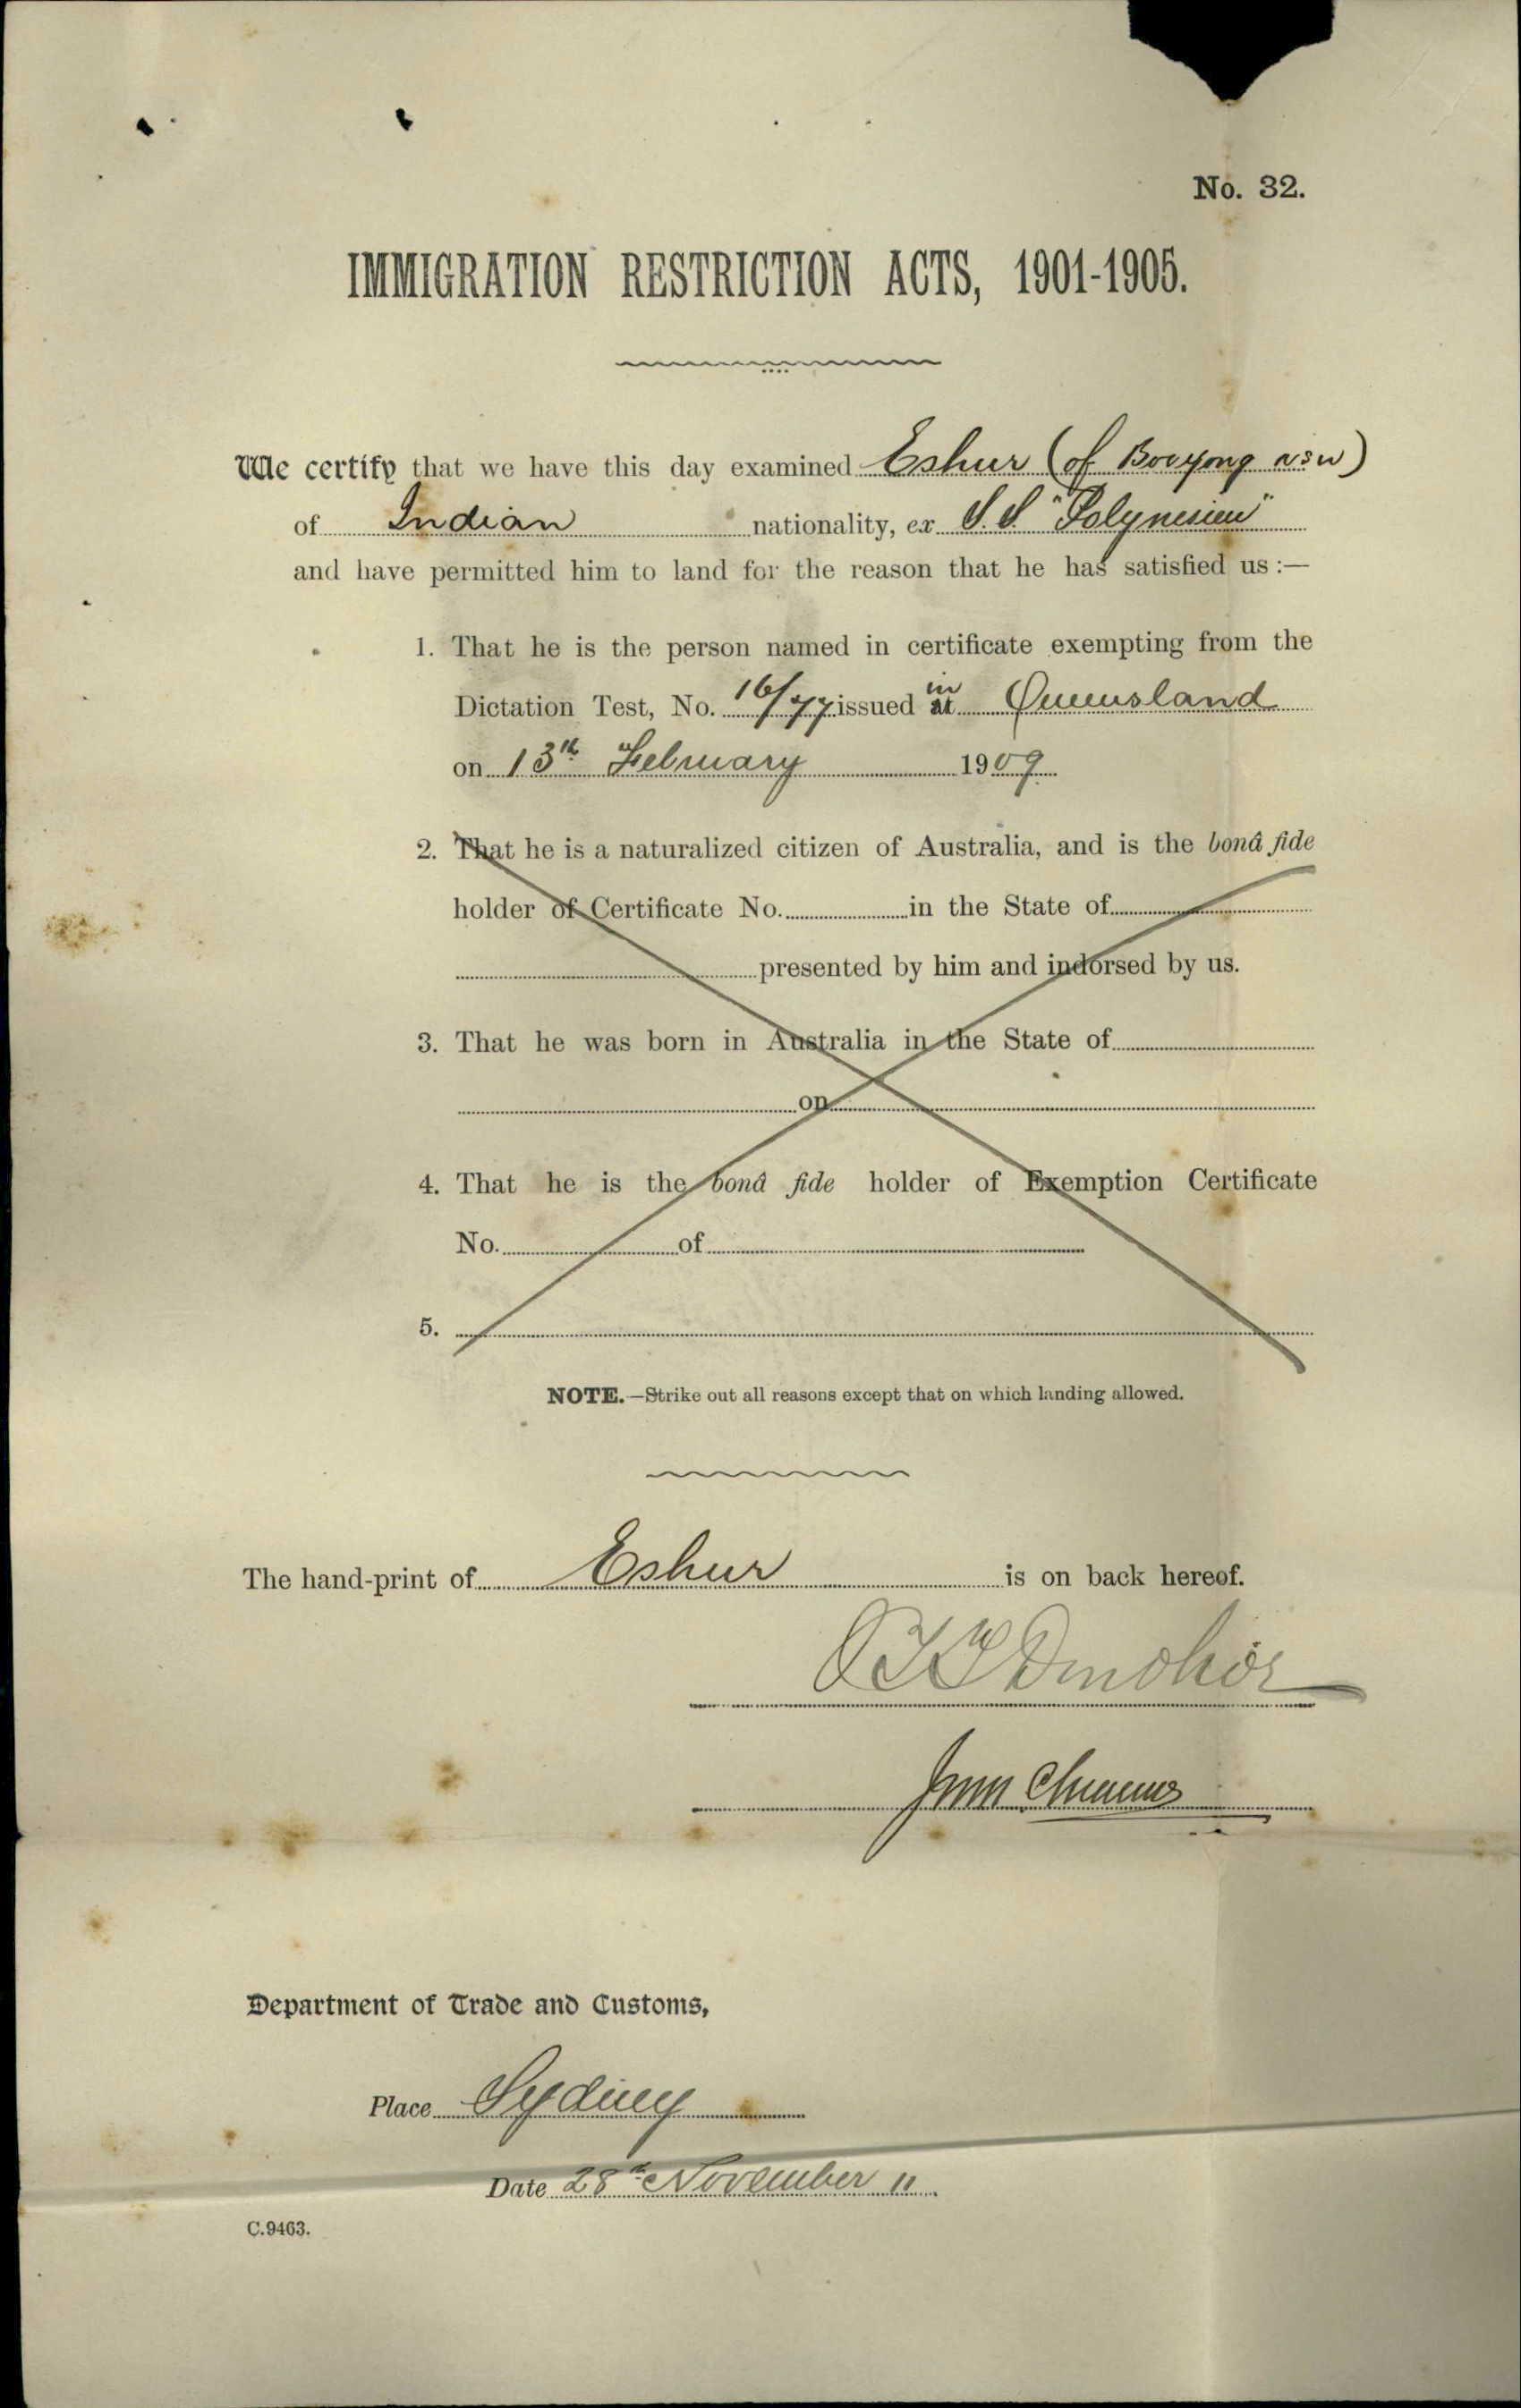 No. 32.
IMMIGRATION RESTRICTION ACTS, 1901-1905.
We certify that we have this day examined Eshur (of Booyong NSW)
of Indian nationality, ex S.S. "Polynesien"
and have permitted him to land for the reason that he has satisfied us :—
1. That he is the person named in certificate exempting from the
Dictation Test, No. 16/77 issued at in Queensland
on 13th February 1909
2. That he is a naturalized citizen of Australia, and is the bonâ fide
holder of Certificate No. in the State of
presented by him and indorsed by us.
3. That he was born in Australia in the State of
on
4. That he is the bonâ fide holder of Exemption Certificate
No. of
5.
NOTE.—Strike out all reasons except that on which landing allowed.
The hand-print of Eshur is on back hereof.
Department of Trade and Customs,
Place Sydney
Date 28th November 11
C.9463.